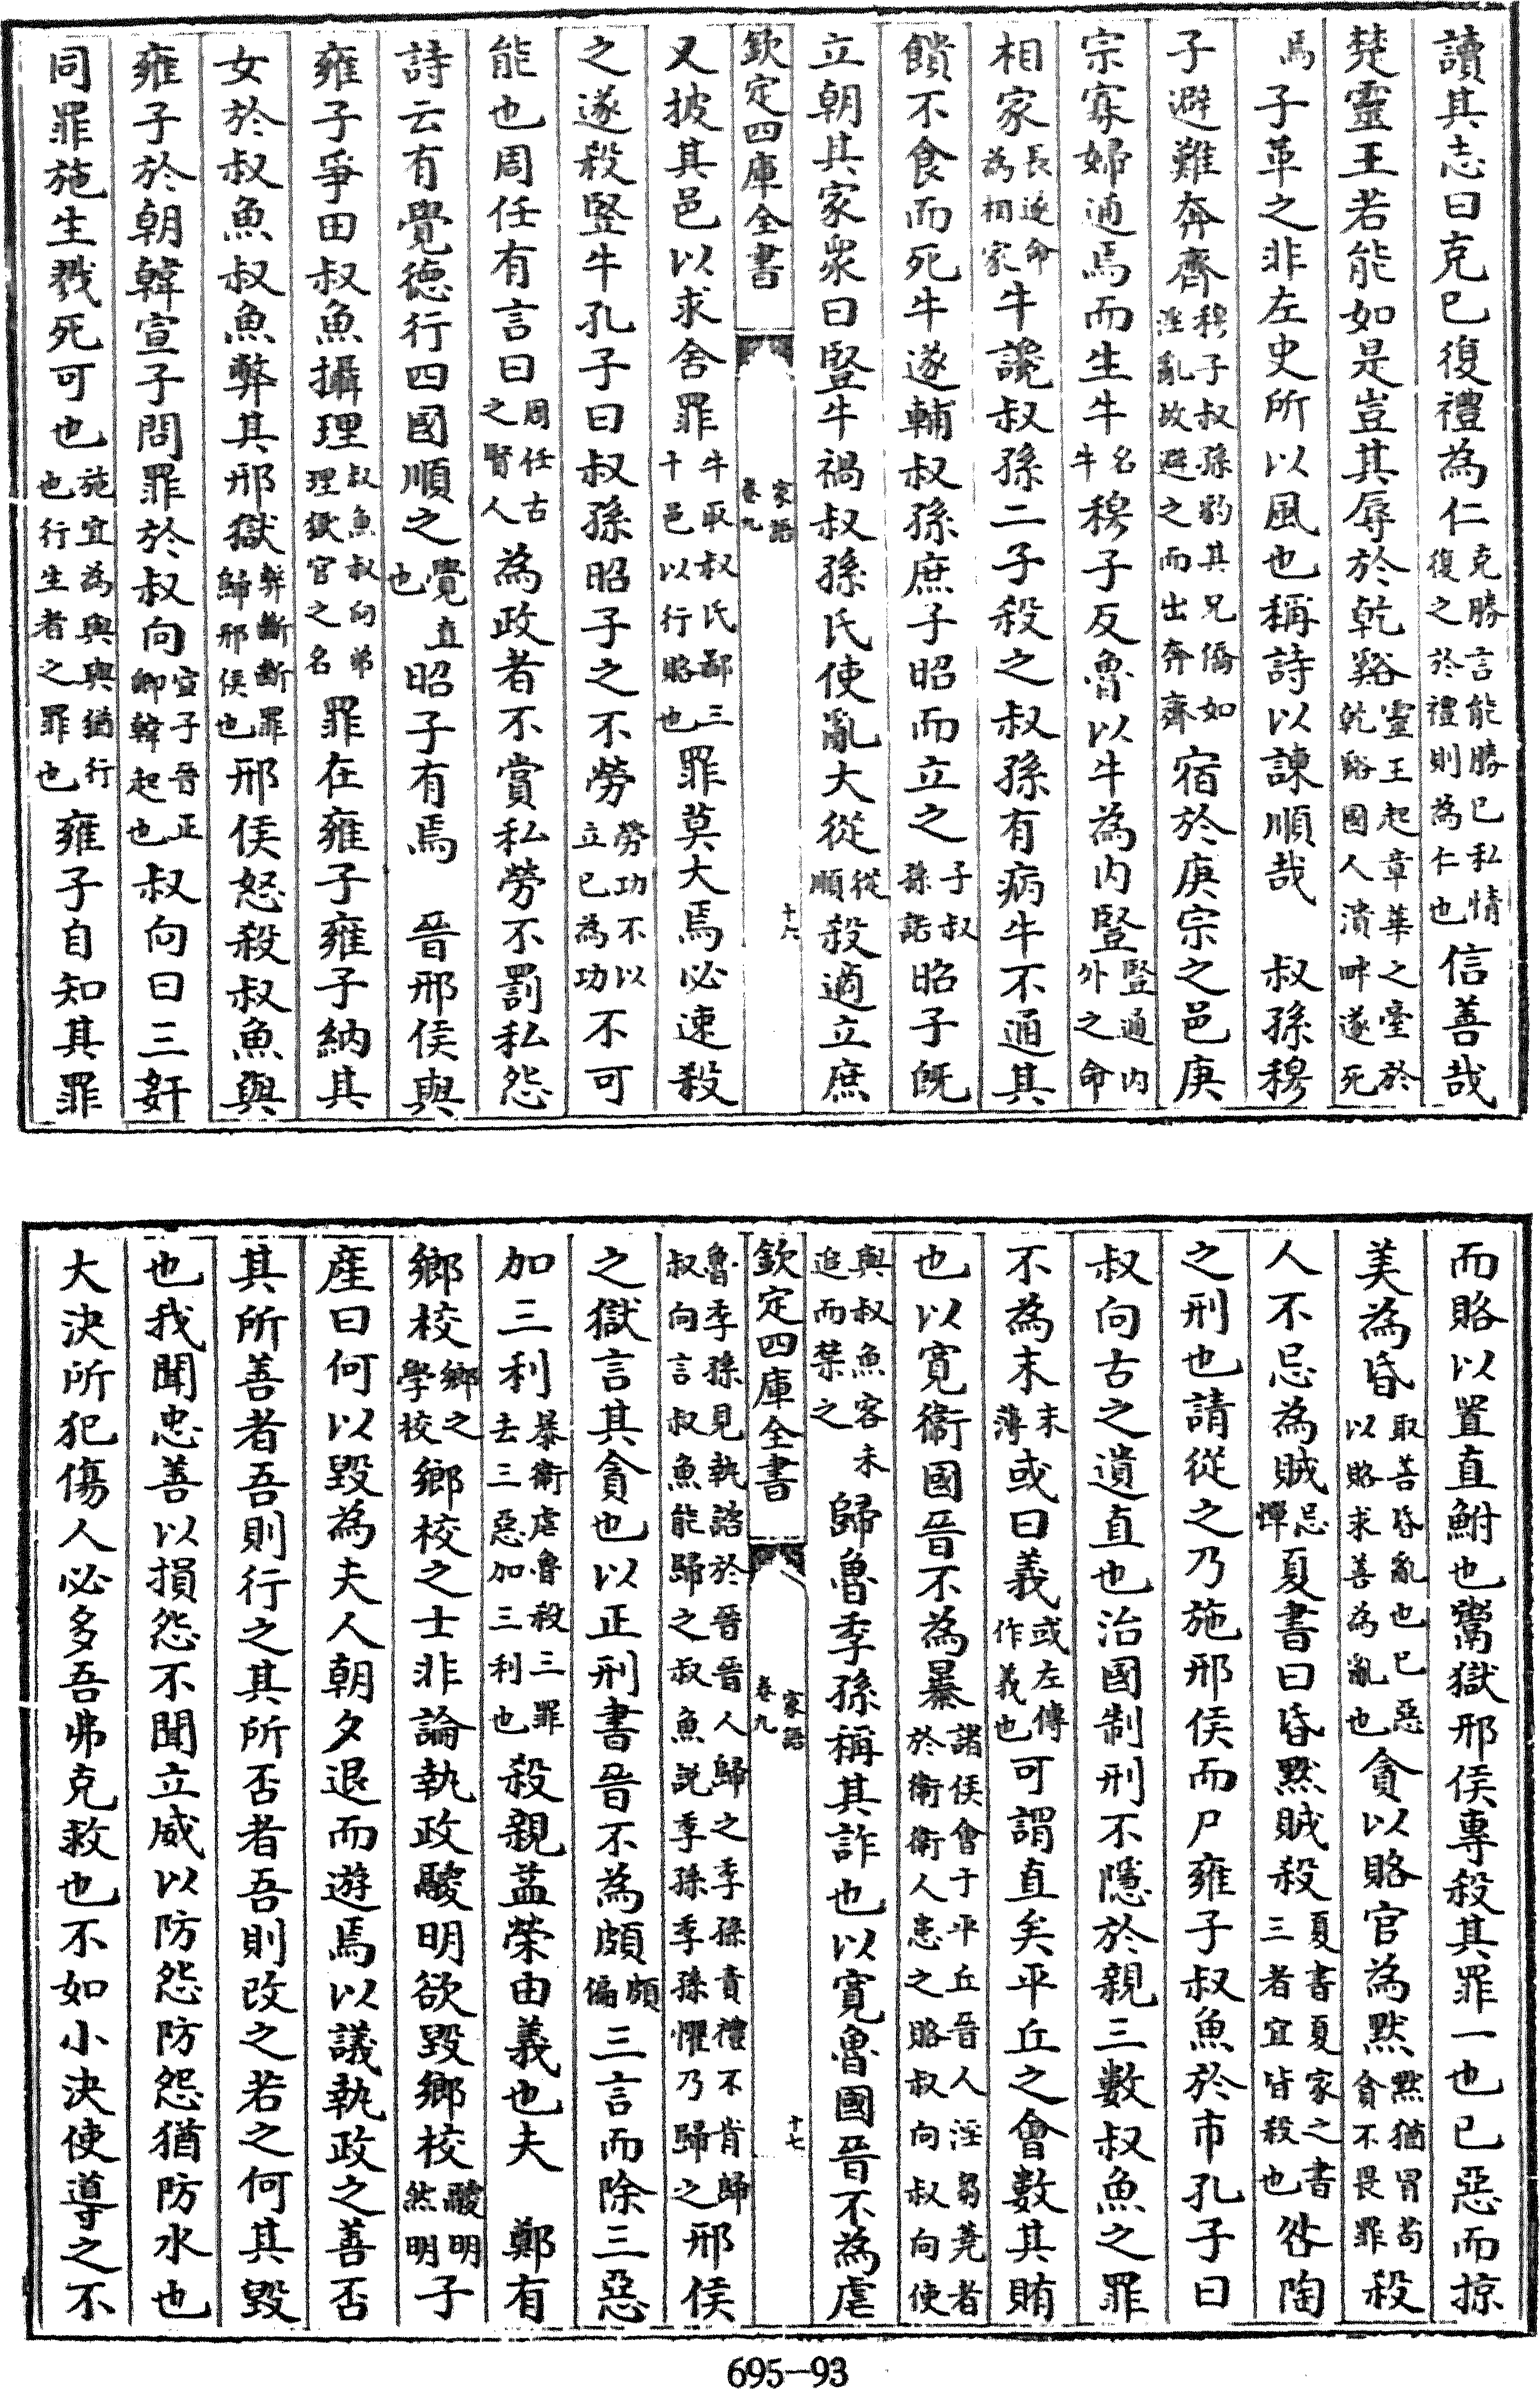 讀其志曰克已復禮為仁克勝言能勝已私情復之於禮則為仁也信善哉
楚靈王若能如是豈其辱於乾谿靈王起章華之臺於乾谿國人潰畔遂死
焉子革之非左史所以風也稱詩以諫順哉　叔孫穆
子避難奔齊穆子叔孫豹其兄僑如淫亂故避之而出奔齊宿於庚宗之邑庚
宗寡婦通焉而生牛名牛穆子反魯以牛為内豎豎通内外之命
相家長遂命為相家牛讒叔孫二子殺之叔孫有病牛不通其
饋不食而死牛遂輔叔孫庶子昭而立之子叔孫諾昭子既
立朝其家衆曰豎牛禍叔孫氏使亂大從從順殺適立庶
欽定四庫全書　家語卷九　十六
又披其邑以求舍罪牛取叔氏鄙三十邑以行賂也罪莫大焉必速殺
之遂殺豎牛孔子曰叔孫昭子之不勞勞功不以立已為功不可
能也周任有言曰周任古之賢人為政者不賞私勞不罰私怨
詩云有覺德行四國順之覺直也昭子有焉　晉邢侯與
雍子爭田叔魚攝理叔魚叔向弟理獄官之名罪在雍子雍子納其
女於叔魚叔魚弊其邢獄弊斷斷罪歸邢侯也邢侯怒殺叔魚與
雍子於朝韓宣子問罪於叔向宣子晉正卿韓起也叔向曰三奸
同罪施生戮死可也施宜為與與猶行也行生者之罪也雍子自知其罪
而賂以置直鮒也鬻獄邢侯專殺其罪一也已惡而掠
美為昏取善昏亂也已惡以賂求善為亂也貪以賂官為默默猶冒苟貪不畏罪殺
人不忌為賊忌憚夏書曰昏默賊殺夏書夏家之書三者宜皆殺也咎陶
之刑也請從之乃施邢侯而尸雍子叔魚於市孔子曰
叔向古之遺直也治國制刑不隱於親三數叔魚之罪
不為末末薄或曰義或左傳作義也可謂直矣平丘之會數其賄
也以寛衛國晉不為暴諸侯會于平丘晉人淫芻蕘者於衛衛人患之賂叔向叔向使
與叔魚客未追而禁之歸魯季孫稱其詐也以寛魯國晉不為虐
欽定四庫全書　家語卷九　十七
魯季孫見執諮於晉晉人歸之季孫責禮不肯歸叔向言叔魚能歸之叔魚説季孫季孫懼乃歸之邢侯
之獄言其貪也以正刑書晉不為頗頗偏三言而除三惡
加三利暴衛虐魯殺三罪去三惡加三利也殺親益榮由義也夫　鄭有
鄉校鄉之學校鄉校之士非論執政鬷明欲毀鄉校鬷明然明子
產曰何以毀為夫人朝夕退而遊焉以議執政之善否
其所善者吾則行之其所否者吾則改之若之何其毀
也我聞忠善以損怨不聞立威以防怨防怨猶防水也
大決所犯傷人必多吾弗克救也不如小決使導之不
695-93